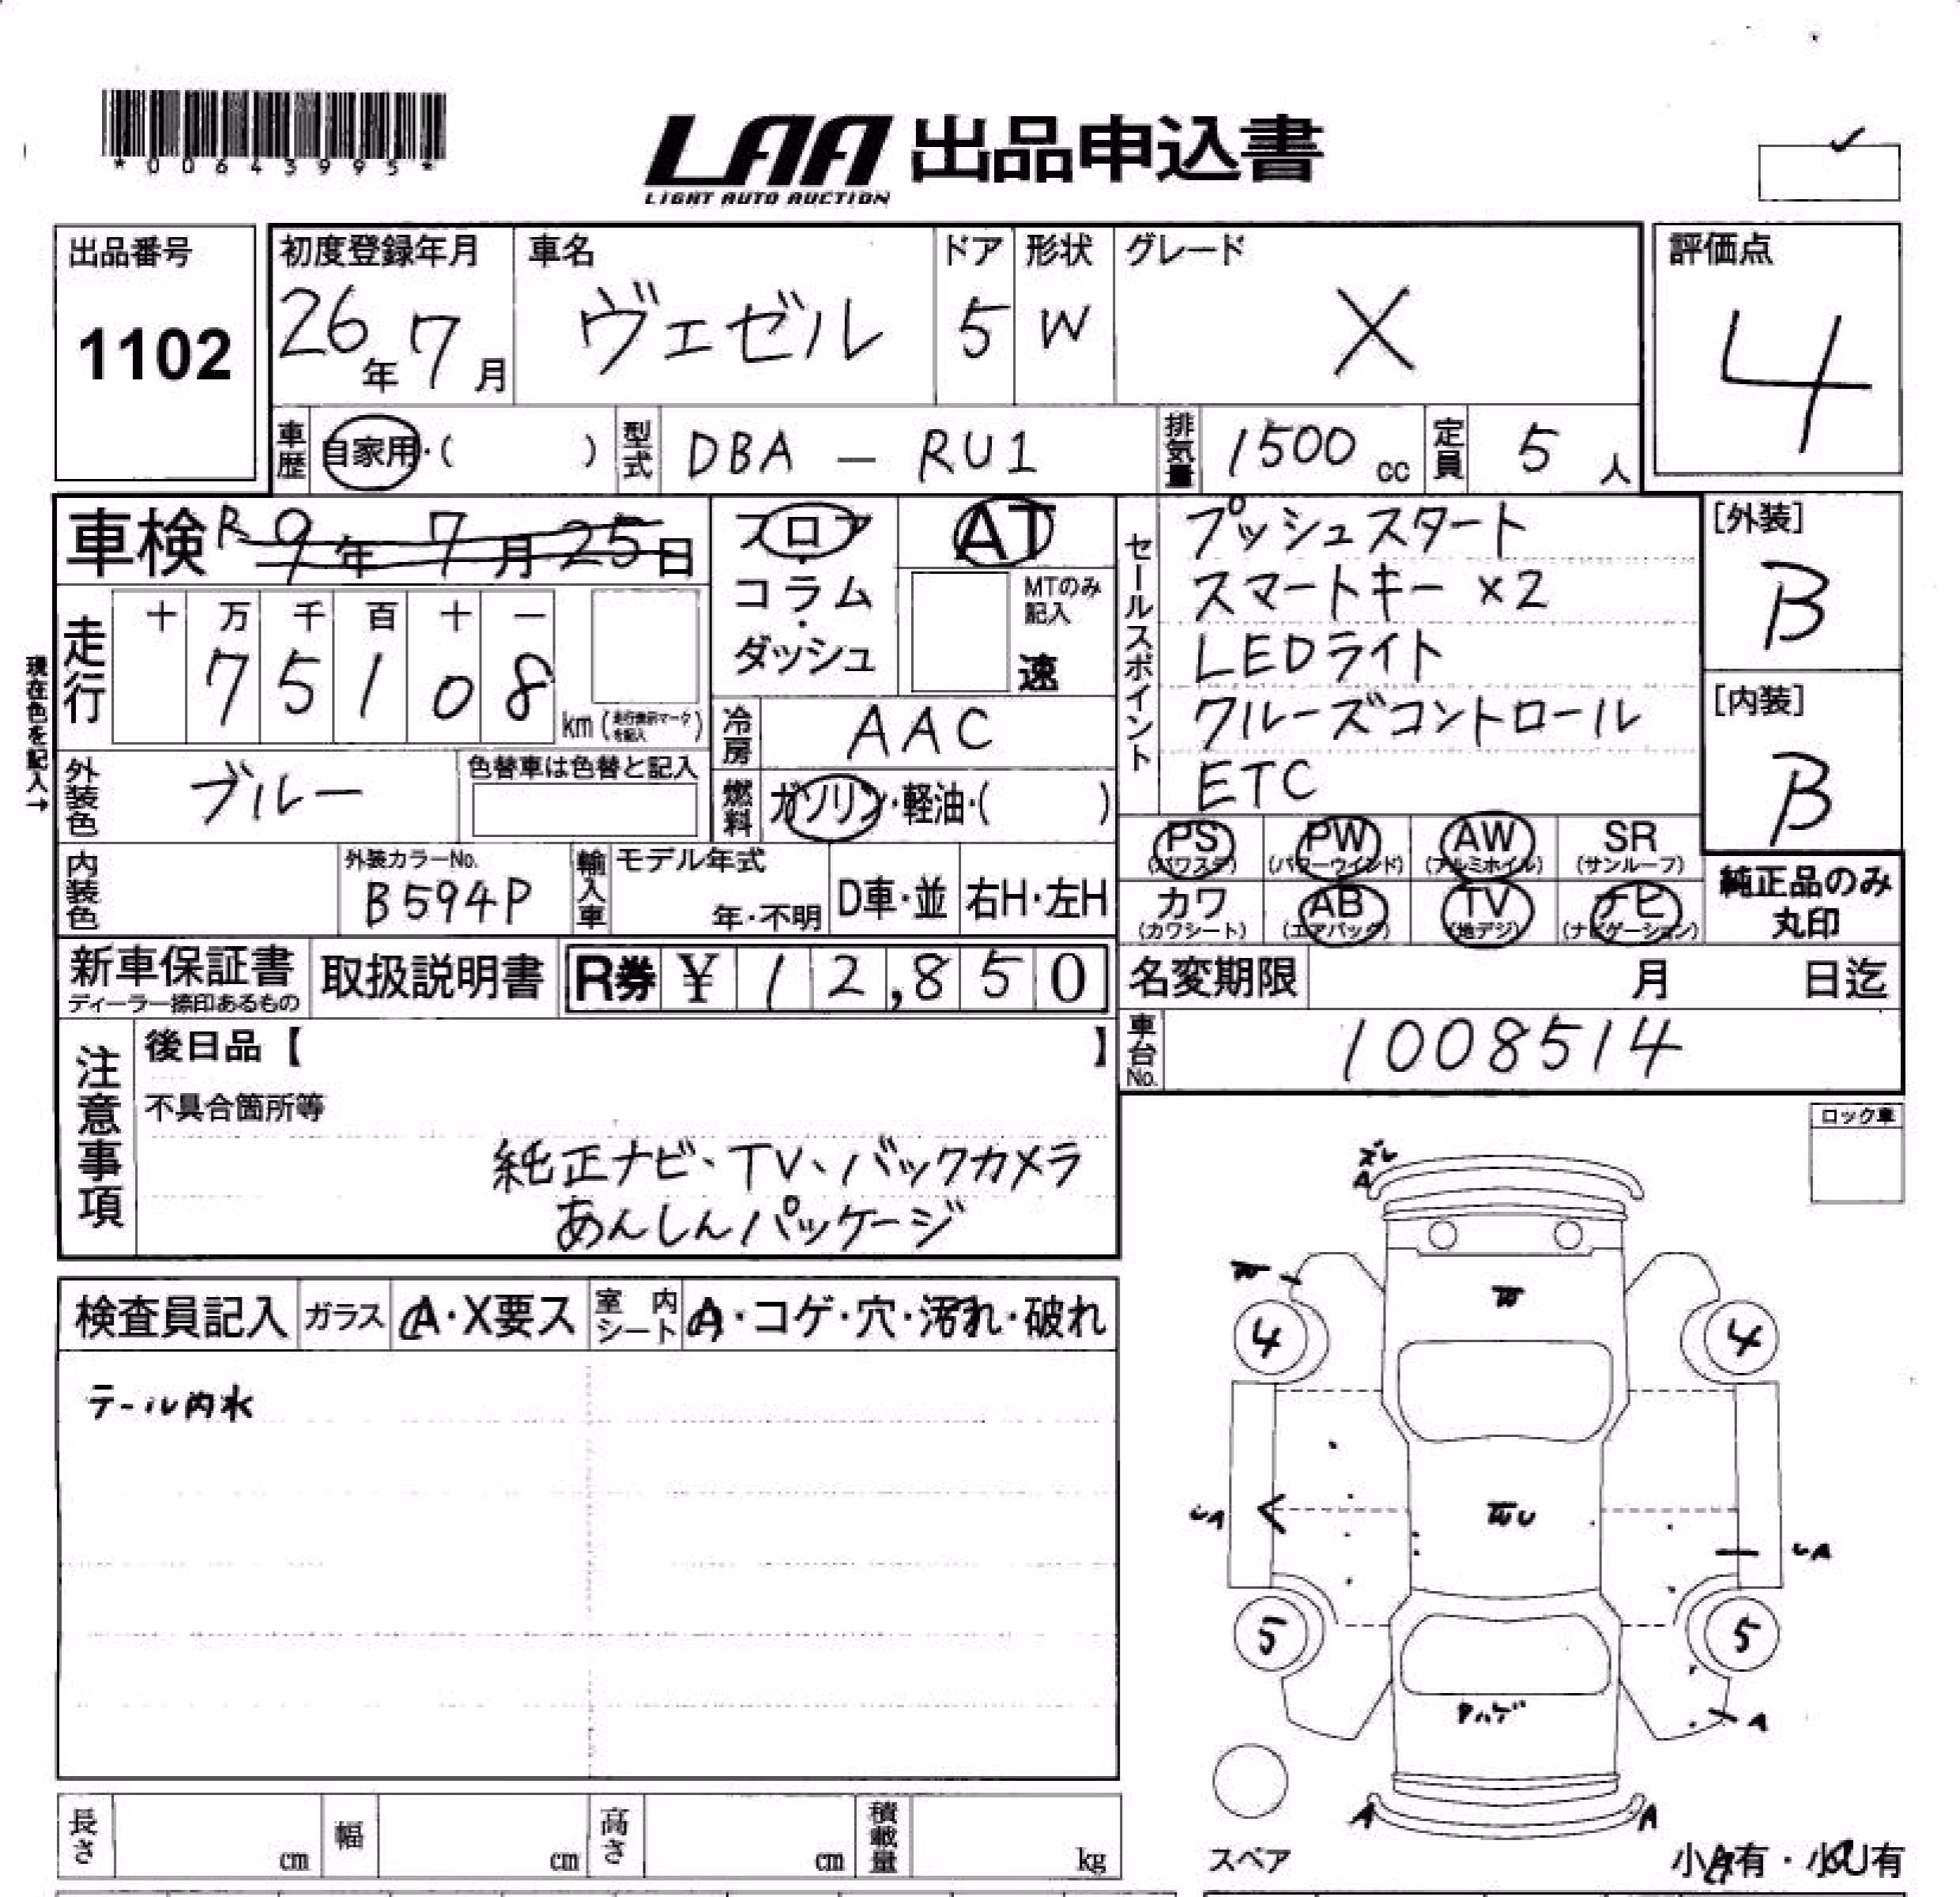 *00643995*
LAA 出品申込書
LIGHT AUTO AUCTION
出品番号
1102
初度登録年月
26年 7月
車名
ヴェゼル
ドア
5
形状
W
グレード
X
評価点
4
車歴 自家用・( )
型式 DBA - RU1
排気量 1500 cc
定員 5 人
車検 R 9年 7月 25日
フロア
コラム
ダッシュ
AT
MTのみ
記入
速
セールスポイント
プッシュスタート
スマートキー ×2
LEDライト
クルーズコントロール
ETC
[外装]
B
[内装]
B
現在色を記入→
走行
十 万 千 百 十 一
7 5 1 0 8
km (走行表示マークを記入)
冷房 AAC
燃料 ガソリン・軽油・( )
外装色 ブルー
色替車は色替と記入
内装色
外装カラーNo.
B594P
輸入車
モデル年式
年・不明
D車・並
右H・左H
PS (パワステ)
PW (パワーウインド)
AW (アルミホイル)
SR (サンルーフ)
カワ (カワシート)
AB (エアバック)
TV (地デジ)
ナビ (ナビゲーション)
純正品のみ
丸印
新車保証書
ディーラー捺印あるもの
取扱説明書
R券 ¥ 12,850
名変期限 月 日迄
車台No. 1008514
注意事項
後日品【 】
不具合箇所等
純正ナビ、TV、バックカメラ
あんしんパッケージ
ロック車
検査員記入
ガラス A・X要ス
室内シート A・コゲ・穴・汚れ・破れ
テール内水
A
W
W
4
4
UA
WU
UA
5
5
クハゲ
A
A
A
スペア
小A有・小U有
長さ cm
幅 cm
高さ cm
積載量 kg